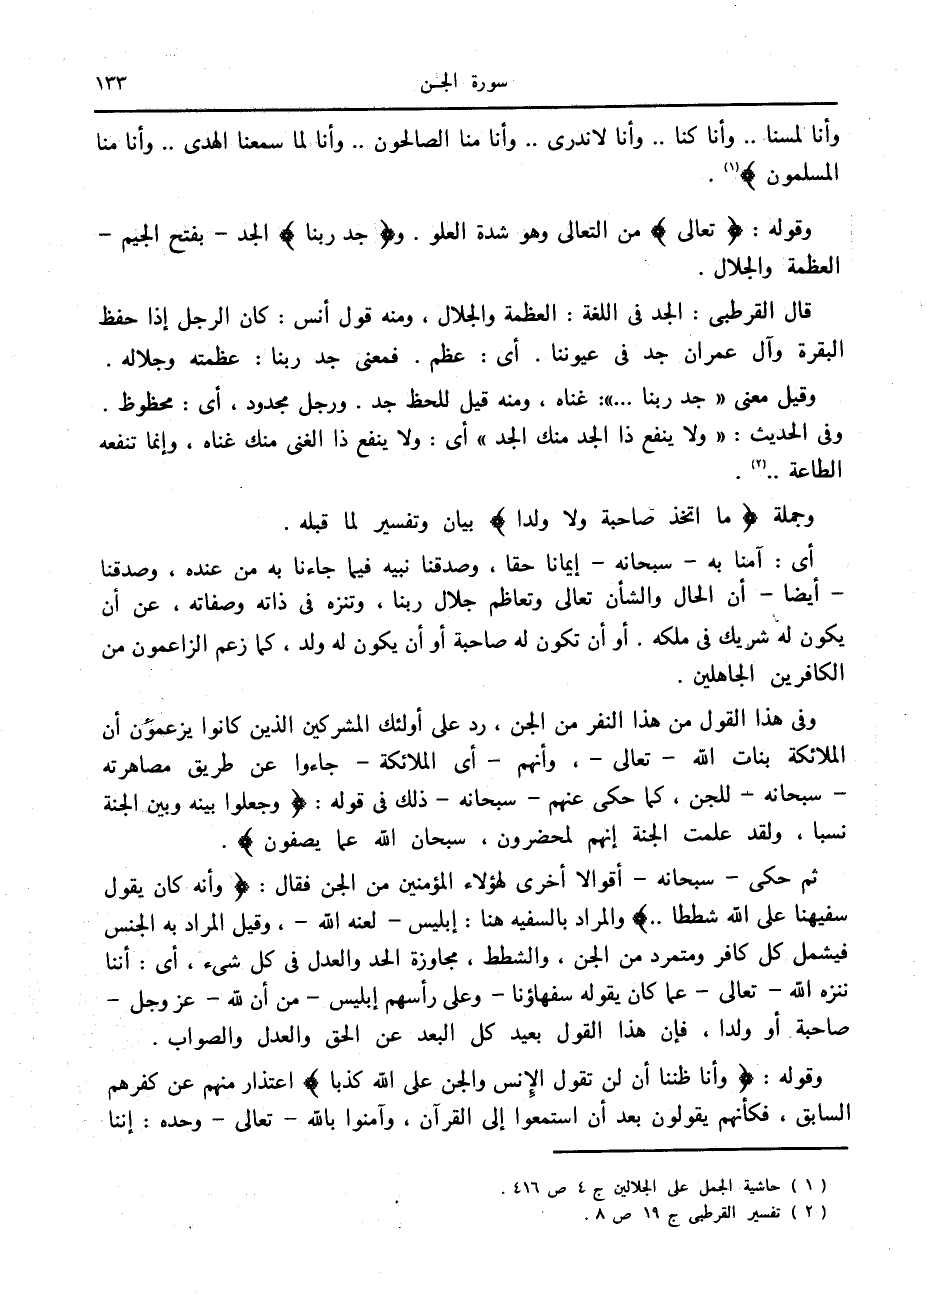 سورة الجـن ١٣٣
وأنا لمسنا .. وأنا كنا .. وأنا لاندرى .. وأنا منا الصالحون .. وأنا لما سمعنا الهدى .. وأنا منا
المسلمون ﴾(١) .
وقوله : ﴿ تعالى ﴾ من التعالى وهو شدة العلو . و﴿ جد ربنا ﴾ الجد – بفتح الجيم –
العظمة والجلال .
قال القرطبى : الجد فى اللغة : العظمة والجلال ، ومنه قول أنس : كان الرجل إذا حفظ
البقرة وآل عمران جد فى عيوننا . أى : عظم . فمعنى جد ربنا : عظمته وجلاله .
وقيل معنى « جد ربنا ...»: غناه ، ومنه قيل للحظ جد . ورجل مجدود ، أى : محظوظ .
وفى الحديث : « ولا ينفع ذا الجد منك الجد » أى : ولا ينفع ذا الغنى منك غناه ، وإنما تنفعه
الطاعة ..(٢) .
وجملة ﴿ ما اتخذ صاحبة ولا ولدا ﴾ بيان وتفسير لما قبله .
أى : آمنا به – سبحانه – إيمانا حقا ، وصدقنا نبيه فيما جاءنا به من عنده ، وصدقنا
– أيضا – أن الحال والشأن تعالى وتعاظم جلال ربنا ، وتنزه فى ذاته وصفاته ، عن أن
يكون له شريك فى ملكه . أو أن تكون له صاحبة أو أن يكون له ولد ، كما زعم الزاعمون من
الكافرين الجاهلين .
وفى هذا القول من هذا النفر من الجن ، رد على أولئك المشركين الذين كانوا يزعمون أن
الملائكة بنات الله – تعالى – ، وأنهم – أى الملائكة – جاءوا عن طريق مصاهرته
– سبحانه – للجن ، كما حكى عنهم – سبحانه – ذلك فى قوله : ﴿ وجعلوا بينه وبين الجنة
نسبا ، ولقد علمت الجنة إنهم لمحضرون ، سبحان الله عما يصفون ﴾ .
ثم حكى – سبحانه – أقوالا أخرى لهؤلاء المؤمنين من الجن فقال : ﴿ وأنه كان يقول
سفيهنا على الله شططا ..﴾ والمراد بالسفيه هنا : إبليس – لعنه الله – ، وقيل المراد به الجنس
فيشمل كل كافر ومتمرد من الجن ، والشطط ، مجاوزة الحد والعدل فى كل شىء ، أى : أننا
ننزه الله – تعالى – عما كان يقوله سفهاؤنا – وعلى رأسهم إبليس – من أن لله – عز وجل –
صاحبة أو ولدا ، فإن هذا القول بعيد كل البعد عن الحق والعدل والصواب .
وقوله : ﴿ وأنا ظننا أن لن تقول الإنس والجن على الله كذبا ﴾ اعتذار منهم عن كفرهم
السابق ، فكأنهم يقولون بعد أن استمعوا إلى القرآن ، وآمنوا بالله – تعالى – وحده : إننا
( ١ ) حاشية الجمل على الجلالين ج ٤ ص ٤١٦ .
( ٢ ) تفسير القرطبى ج ١٩ ص ٨ .